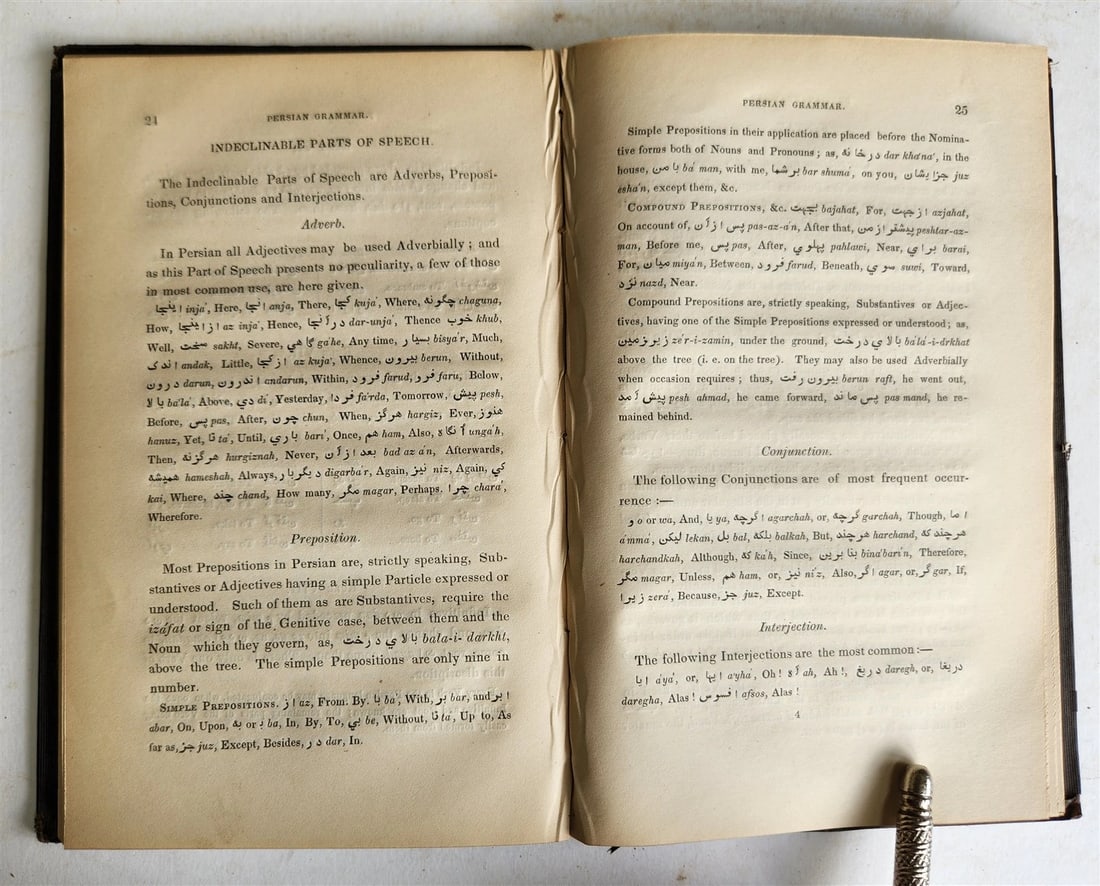 24
PERSIAN GRAMMAR.
INDECLINABLE PARTS OF SPEECH.
The Indeclinable Parts of Speech are Adverbs, Preposi-
tions, Conjunctions and Interjections.
Adverb.
In Persian all Adjectives may be used Adverbially ; and
as this Part of Speech presents no peculiarity, a few of those
in most common use, are here given.
اينجا inja', Here, آنجا anja, There, كجا kuja', Where, چگونه chaguna,
How, از اينجا az inja', Hence, در آنجا dar-unja', Thence خوب khub,
Well, سخت sakht, Severe, گاهي ga'he, Any time, بسيار bisya'r, Much,
اندك andak, Little, از كجا az kuja', Whence, بيرون berun, Without,
درون darun, اندرون andarun, Within, فرود farud, فرو faru, Below,
بالا ba'la', Above, دي di', Yesterday, فردا fa'rda, Tomorrow, پيش pesh,
Before, پس pas, After, چون chun, When, هرگز hargiz, Ever, هنوز
hanuz, Yet, تا ta', Until, باري bari', Once, هم ham, Also, آنگاه unga'h,
Then, هرگزنه hurgiznah, Never, بعد ازآن bad az a'n, Afterwards,
هميشه hameshah, Always, ديگربار digarba'r, Again, نيز niz, Again, كي
kai, Where, چند chand, How many, مگر magar, Perhaps. چرا chara',
Wherefore.
Preposition.
Most Prepositions in Persian are, strictly speaking, Sub-
stantives or Adjectives having a simple Particle expressed or
understood. Such of them as are Substantives, require the
izáfat or sign of the Genitive case, between them and the
Noun which they govern, as, بالاي درخت bala-i- darkht,
above the tree. The simple Prepositions are only nine in
number.
SIMPLE PREPOSITIONS. از az, From. By. با ba', With, بر bar, and ابر
abar, On, Upon, به or ب ba, In, By, To, بي be, Without, تا ta', Up to, As
far as, جز juz, Except, Besides, در dar, In.
PERSIAN GRAMMAR.
25
Simple Prepositions in their application are placed before the Nomina-
tive forms both of Nouns and Pronouns ; as, درخانه dar kha'na', in the
house, بامن ba' man, with me, برشما bar shuma', on you, جزايشان juz
esha'n, except them, &c.
COMPOUND PREPOSITIONS, &c. بجهت bajahat, For, ازجهت azjahat,
On account of, پس ازآن pas-az-a'n, After that, پيشترازمن peshtar-az-
man, Before me, پس pas, After, پهلوي pahlawi, Near, براي barai,
For, ميان miya'n, Between, فرود farud, Beneath, سوي suwi, Toward,
نزد nazd, Near.
Compound Prepositions are, strictly speaking, Substantives or Adjec-
tives, having one of the Simple Prepositions expressed or understood; as,
زيرزمين ze'r-i-zamin, under the ground, بالاي درخت ba'la'-i-drkhat
above the tree (i. e. on the tree). They may also be used Adverbially
when occasion requires ; thus, بيرون رفت berun raft, he went out,
پيش آمد pesh ahmad, he came forward, پس ماند pas mand, he re-
mained behind.
Conjunction.
The following Conjunctions are of most frequent occur-
rence :—
و o or wa, And, يا ya, اگرچه agarchah, or, گرچه garchah, Though, اما
a'mma', ليكن lekan, بل bal, بلكه balkah, But, هرچند harchand, هرچندكه
harchandkah, Although, كه ka'h, Since, بنابرين bina'bari'n, Therefore,
مگر magar, Unless, هم ham, or, نيز ni'z, Also, اگر agar, or, گر gar, If,
زيرا zera', Because, جز juz, Except.
Interjection.
The following Interjections are the most common :—
ايا a'ya', or, ايها a'yha', Oh! آه ah, Ah !, دريغ daregh, or, دريغا
daregha, Alas ! افسوس afsos, Alas !
4